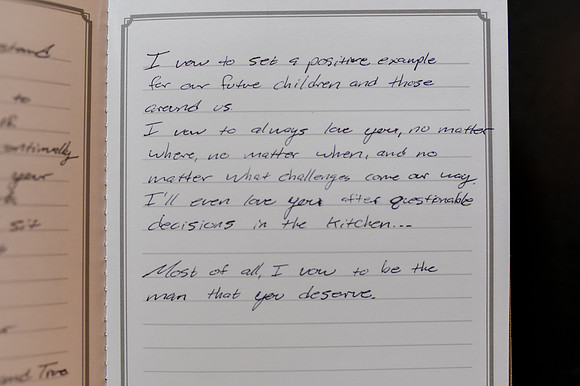 stand
to
continually
your
sit
and Two
I vow to set a positive example
for our future children and those
around us.
I vow to always love you, no matter
where, no matter when, and no
matter what challenges come our way.
I'll even love you after questionable
decisions in the kitchen...
Most of all, I vow to be the
man that you deserve.